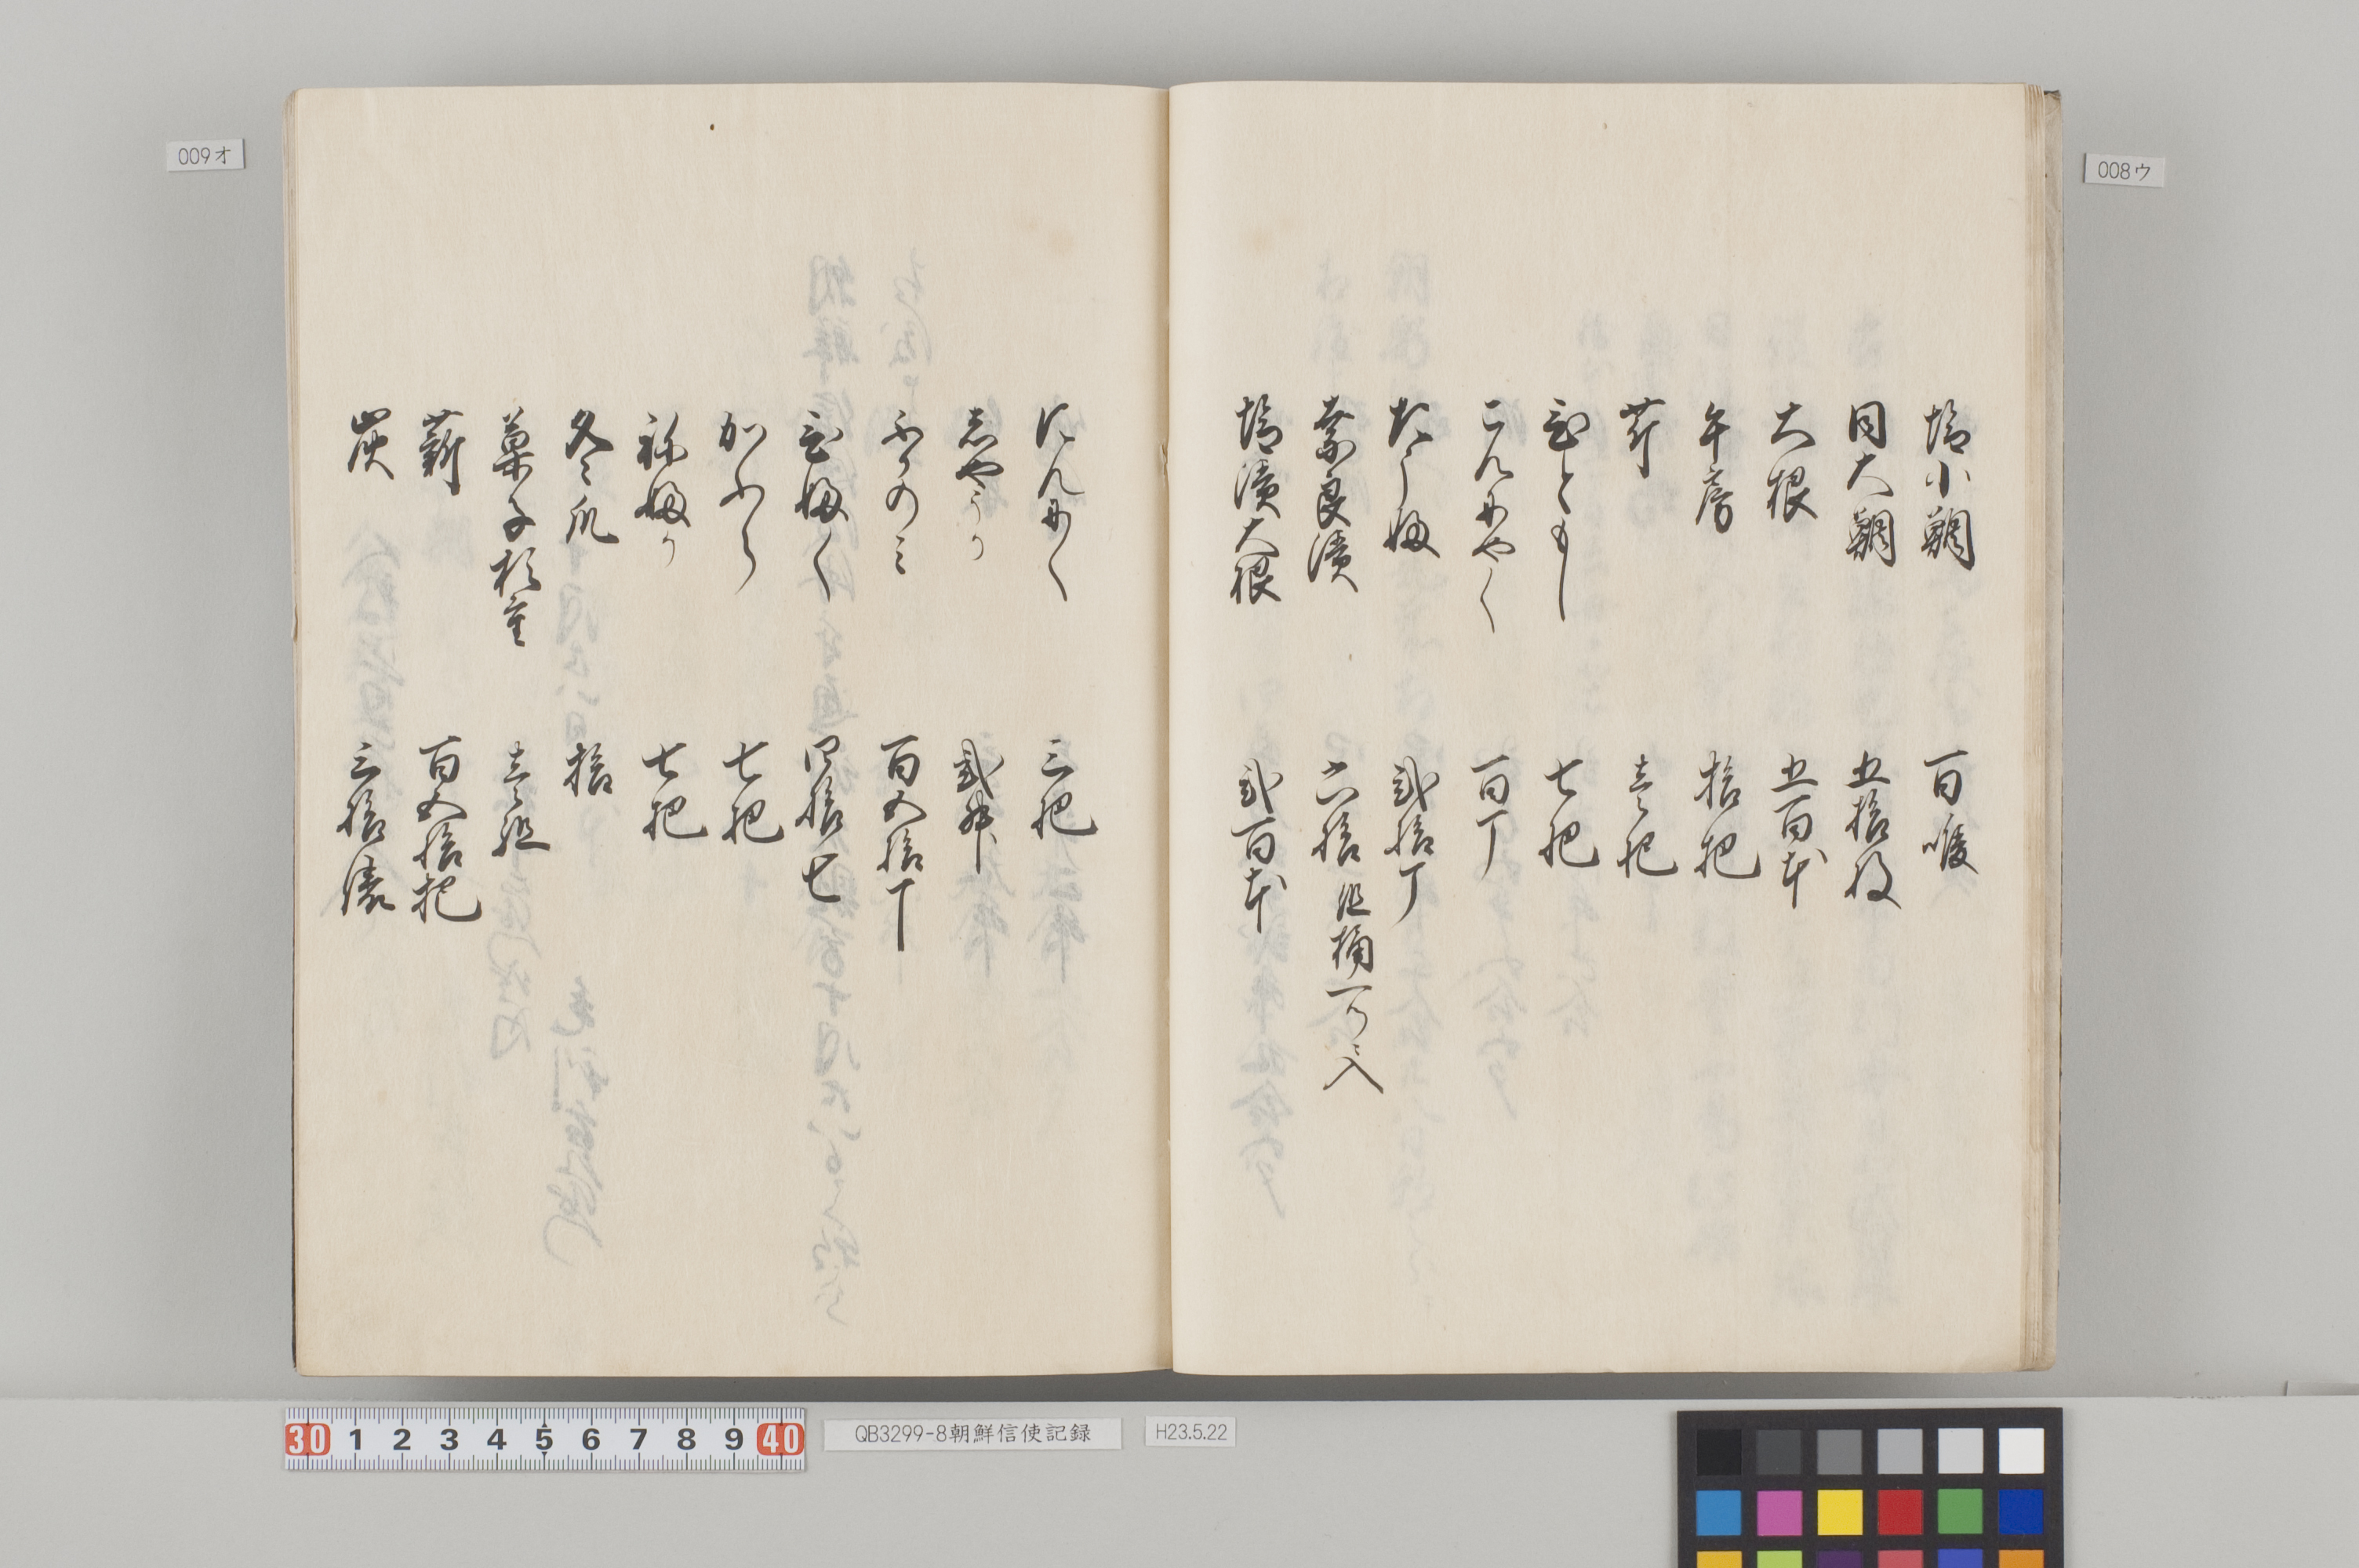 008ウ
塩小鯛 百喉
同大鯛 五拾枚
大根 五百本
午房 拾把
芹 壱把
ひともし 七把
こんにやく 百丁
たうふ 弐拾丁
奈良漬 六拾 但桶一つニ入
塩漬大根 弐百本
009オ
にんにく 三把
志やうか 弐升
百五拾丁
四拾七
かふら 七把
祢ふか 七把
冬瓜 拾
菓子杉重 壱組
薪 百五拾把
炭 三拾俵
30 1 2 3 4 5 6 7 8 9 40
QB3299-8朝鮮信使記録
H23.5.22